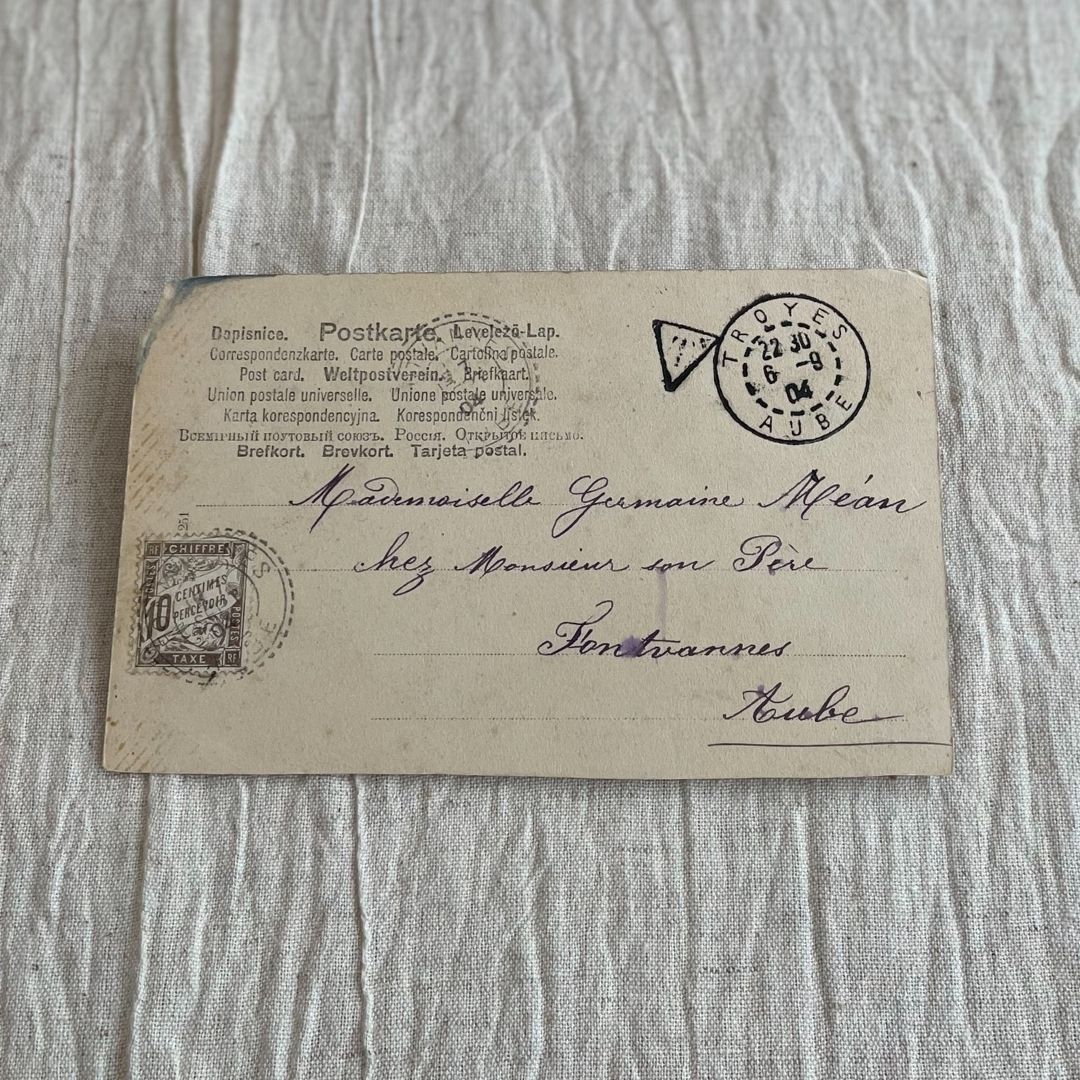 Dopisnice. Postkarte. Levelező-Lap.
Correspondenzkarte. Carte postale. Cartolina postale.
Post card. Weltpostverein. Briefkaart.
Union postale universelle. Unione postale universale.
Karta korespondencyjna. Korespondenční lístek.
Всемірный почтовый союзъ. Россія. Открытое письмо.
Brefkort. Brevkort. Tarjeta postal.
TROYES
22 30
6 -9
04
AUBE
7
04
Mademoiselle Germaine Méan
chez Monsieur son Père
Fontvannes
Aube
251
RF CHIFFRE
POSTES
10 CENTIMES
PERCEVOIR
TAXE RF